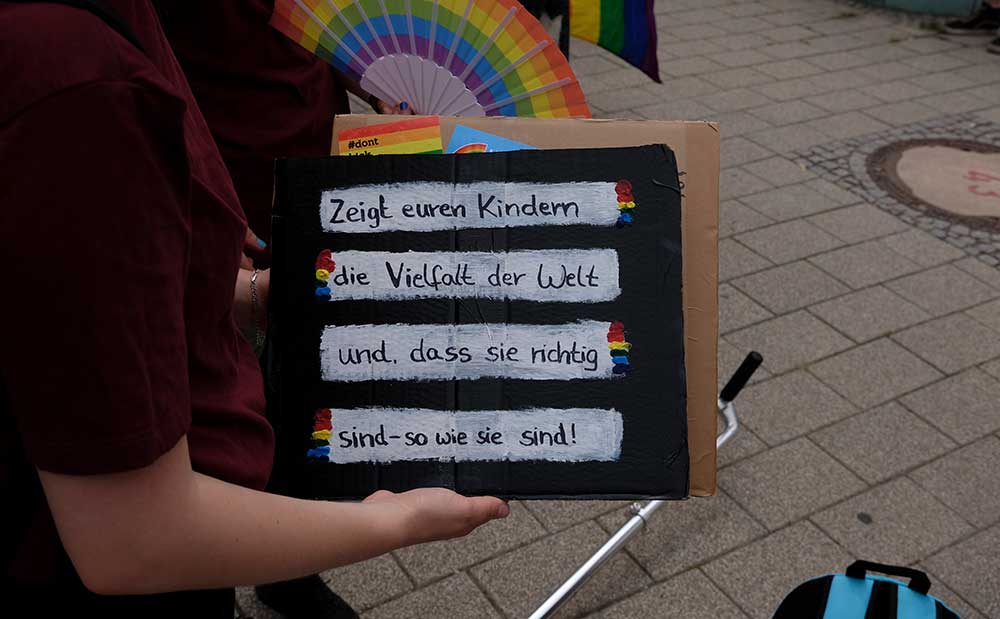 #dont
Zeigt euren Kindern
die Vielfalt der Welt
und, dass sie richtig
sind-so wie sie sind!